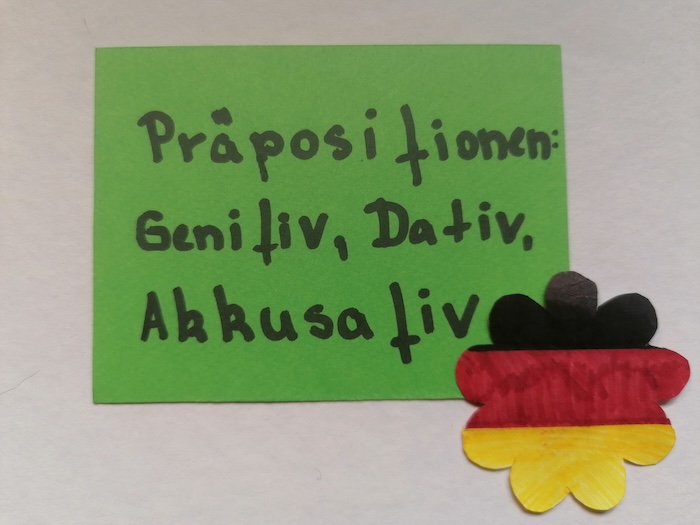 Präpositionen:
Genitiv, Dativ,
Akkusativ